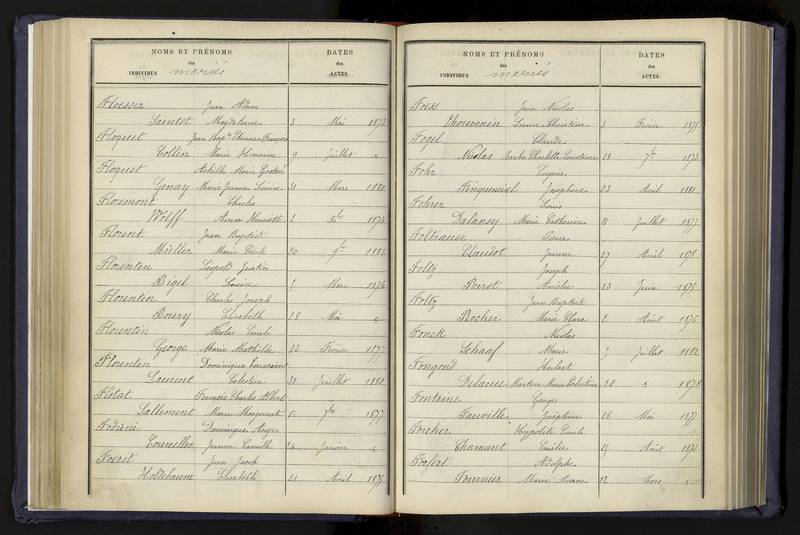 NOMS ET PRÉNOMS
des
INDIVIDUS mariés
DATES
des
ACTES.
Floesser Jean Adam
Saintot Magdeleine 3 Mai 1873
Floquet Jean Bapte Etienne François
Collin Marie Honorine 9 Juillet "
Floquet Achille Marie Gaston
Genay Marie Jeanne 31 Mars 1880
Floremont Charles
Wolff Anne Henriette 2 Xbre 1874
Florent Jean Baptiste
Müller Marie Cécile 20 9bre 1882
Florentin Léopold
Bigel Louise 5 Mars 1874
Florentin Charles Joseph
Boury Elisabeth 18 Mai "
Florentin Nicolas Emile
George Marie Mathilde 12 Février 1877
Florentin Dominique Toussaint
Laurent Célestine 31 Juillet 1880
Flotat François Charles Albert
Sallement Marie Margueritte 5 7bre 1877
Dominique Ange
Courcelles Jeanne Camille 24 Janvier "
Foerst Jean Jacob
Holdebaum Elisabeth 21 Avril 1875
NOMS ET PRÉNOMS
des
INDIVIDUS mariés
DATES
des
ACTES.
Foess Jean Nicolas
Thouvenin Louise Christine 3 Février 1875
Fogel Claude
Nicolas Barbe Charlotte Constance 18 7bre 1873
Fohr Eugène
Joséphine 23 Avril 1881
Fohrer Louis
Dalansy Marie Catherine 11 Juillet 1877
Foltrauer Pierre
Claudot Jeanne 27 Avril 1878
Foltz Joseph
Poirot Amélie 23 Juin 1875
Foltz Jean Baptiste
Rocher Marie Clare 2 Août 1876
Fonck Nicolas
Schaaf Marie 3 Juillet 1882
Fongond Hubert
Delarue Marie Célestine 20 " 1878
Fontaine Georges
Fauville Joséphine 26 Mai 1877
Forcher Hyppolite Emile
Chamant Emélie 29 Août 1873
Forfert Adolphe
Fournier Marie Anne 12 Mars "